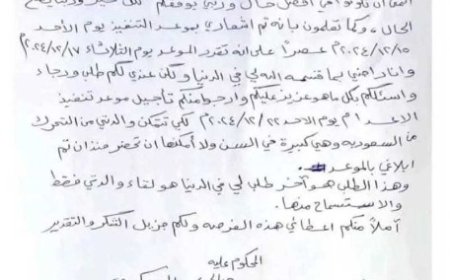 الحال ، وكما تعلمون بأنه تم اشعاري بموعد التنفيذ يوم الأحد
٢٠٢٤/١٢/١٥م عصراً على انه تقرر الموعد يوم الثلاثاء ٢٠٢٤/١٢/١٧م
وانا راضي بما قسمه الله لي في الدنيا ولكن عندي لكم طلب ورجاء
واسئلكم بكل ما هو عزيز عليكم وارجوا منكم تأجيل موعد تنفيذ
الاعدام يوم الاحد ٢٠٢٤/١٢/٢٢م لكي تتمكن والدتي من التحرك
من السعودية وهي كبيرة في السن ولا أمكنها ان تحضر منذ ان تم
ابلاغي بالموعد
وهذا الطلب هو آخر طلب لي في الدنيا هو لقاء والدتي فقط
والاستسماح منها.
آملاً منكم اعطائي هذه الفرصه ولكم جزيل الشكر والتقدير
المحكوم عليه